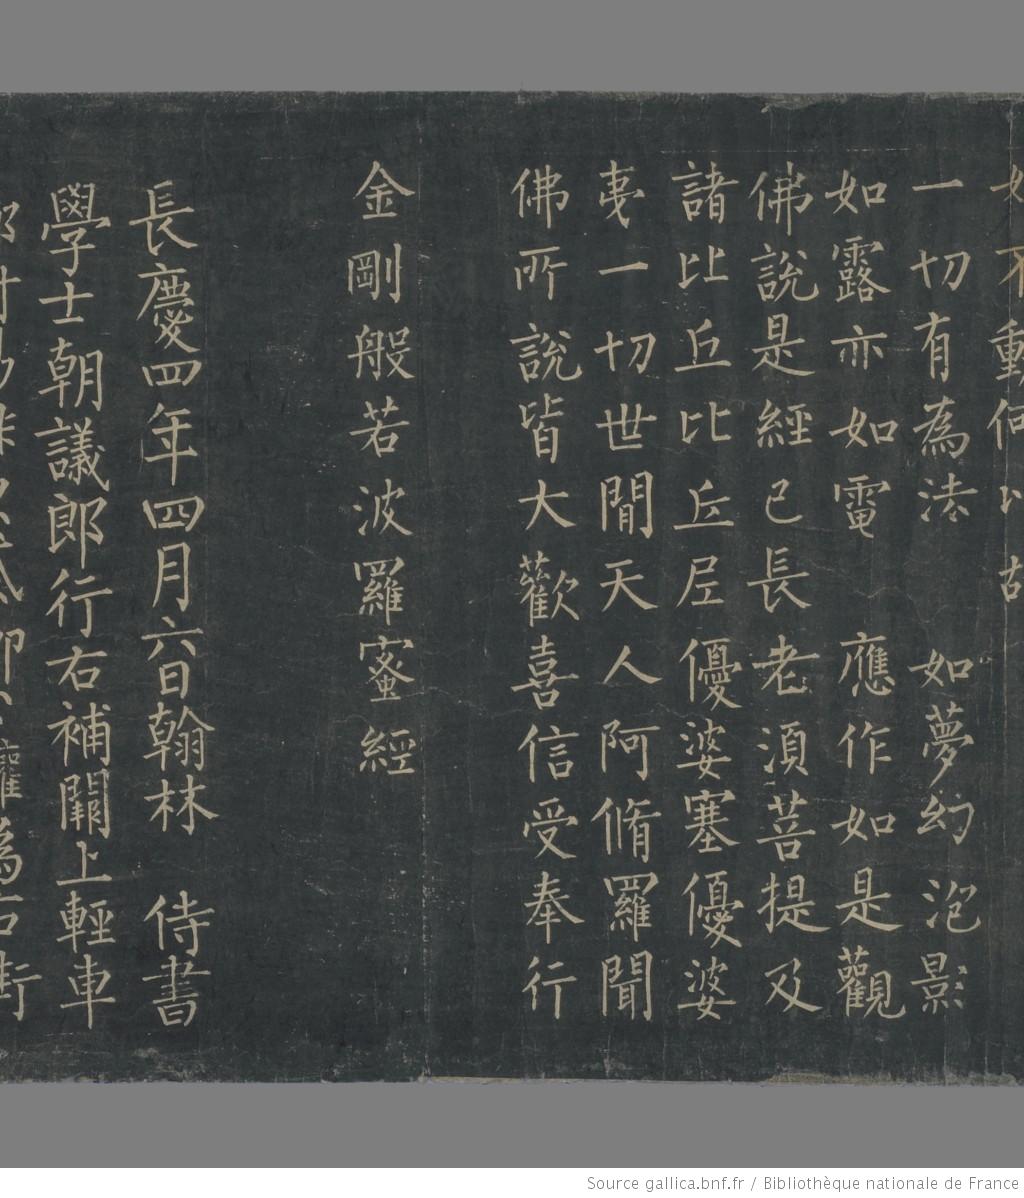 如不動何以故
一切有為法 如夢幻泡影
如露亦如電 應作如是觀
佛說是經已長老須菩提及
諸比丘比丘尼優婆塞優婆
夷一切世間天人阿脩羅聞
佛所說皆大歡喜信受奉行
金剛般若波羅蜜經
長慶四年四月六日翰林 侍書
學士朝議郎行右補闕上輕車
Source gallica.bnf.fr / Bibliothèque nationale de France